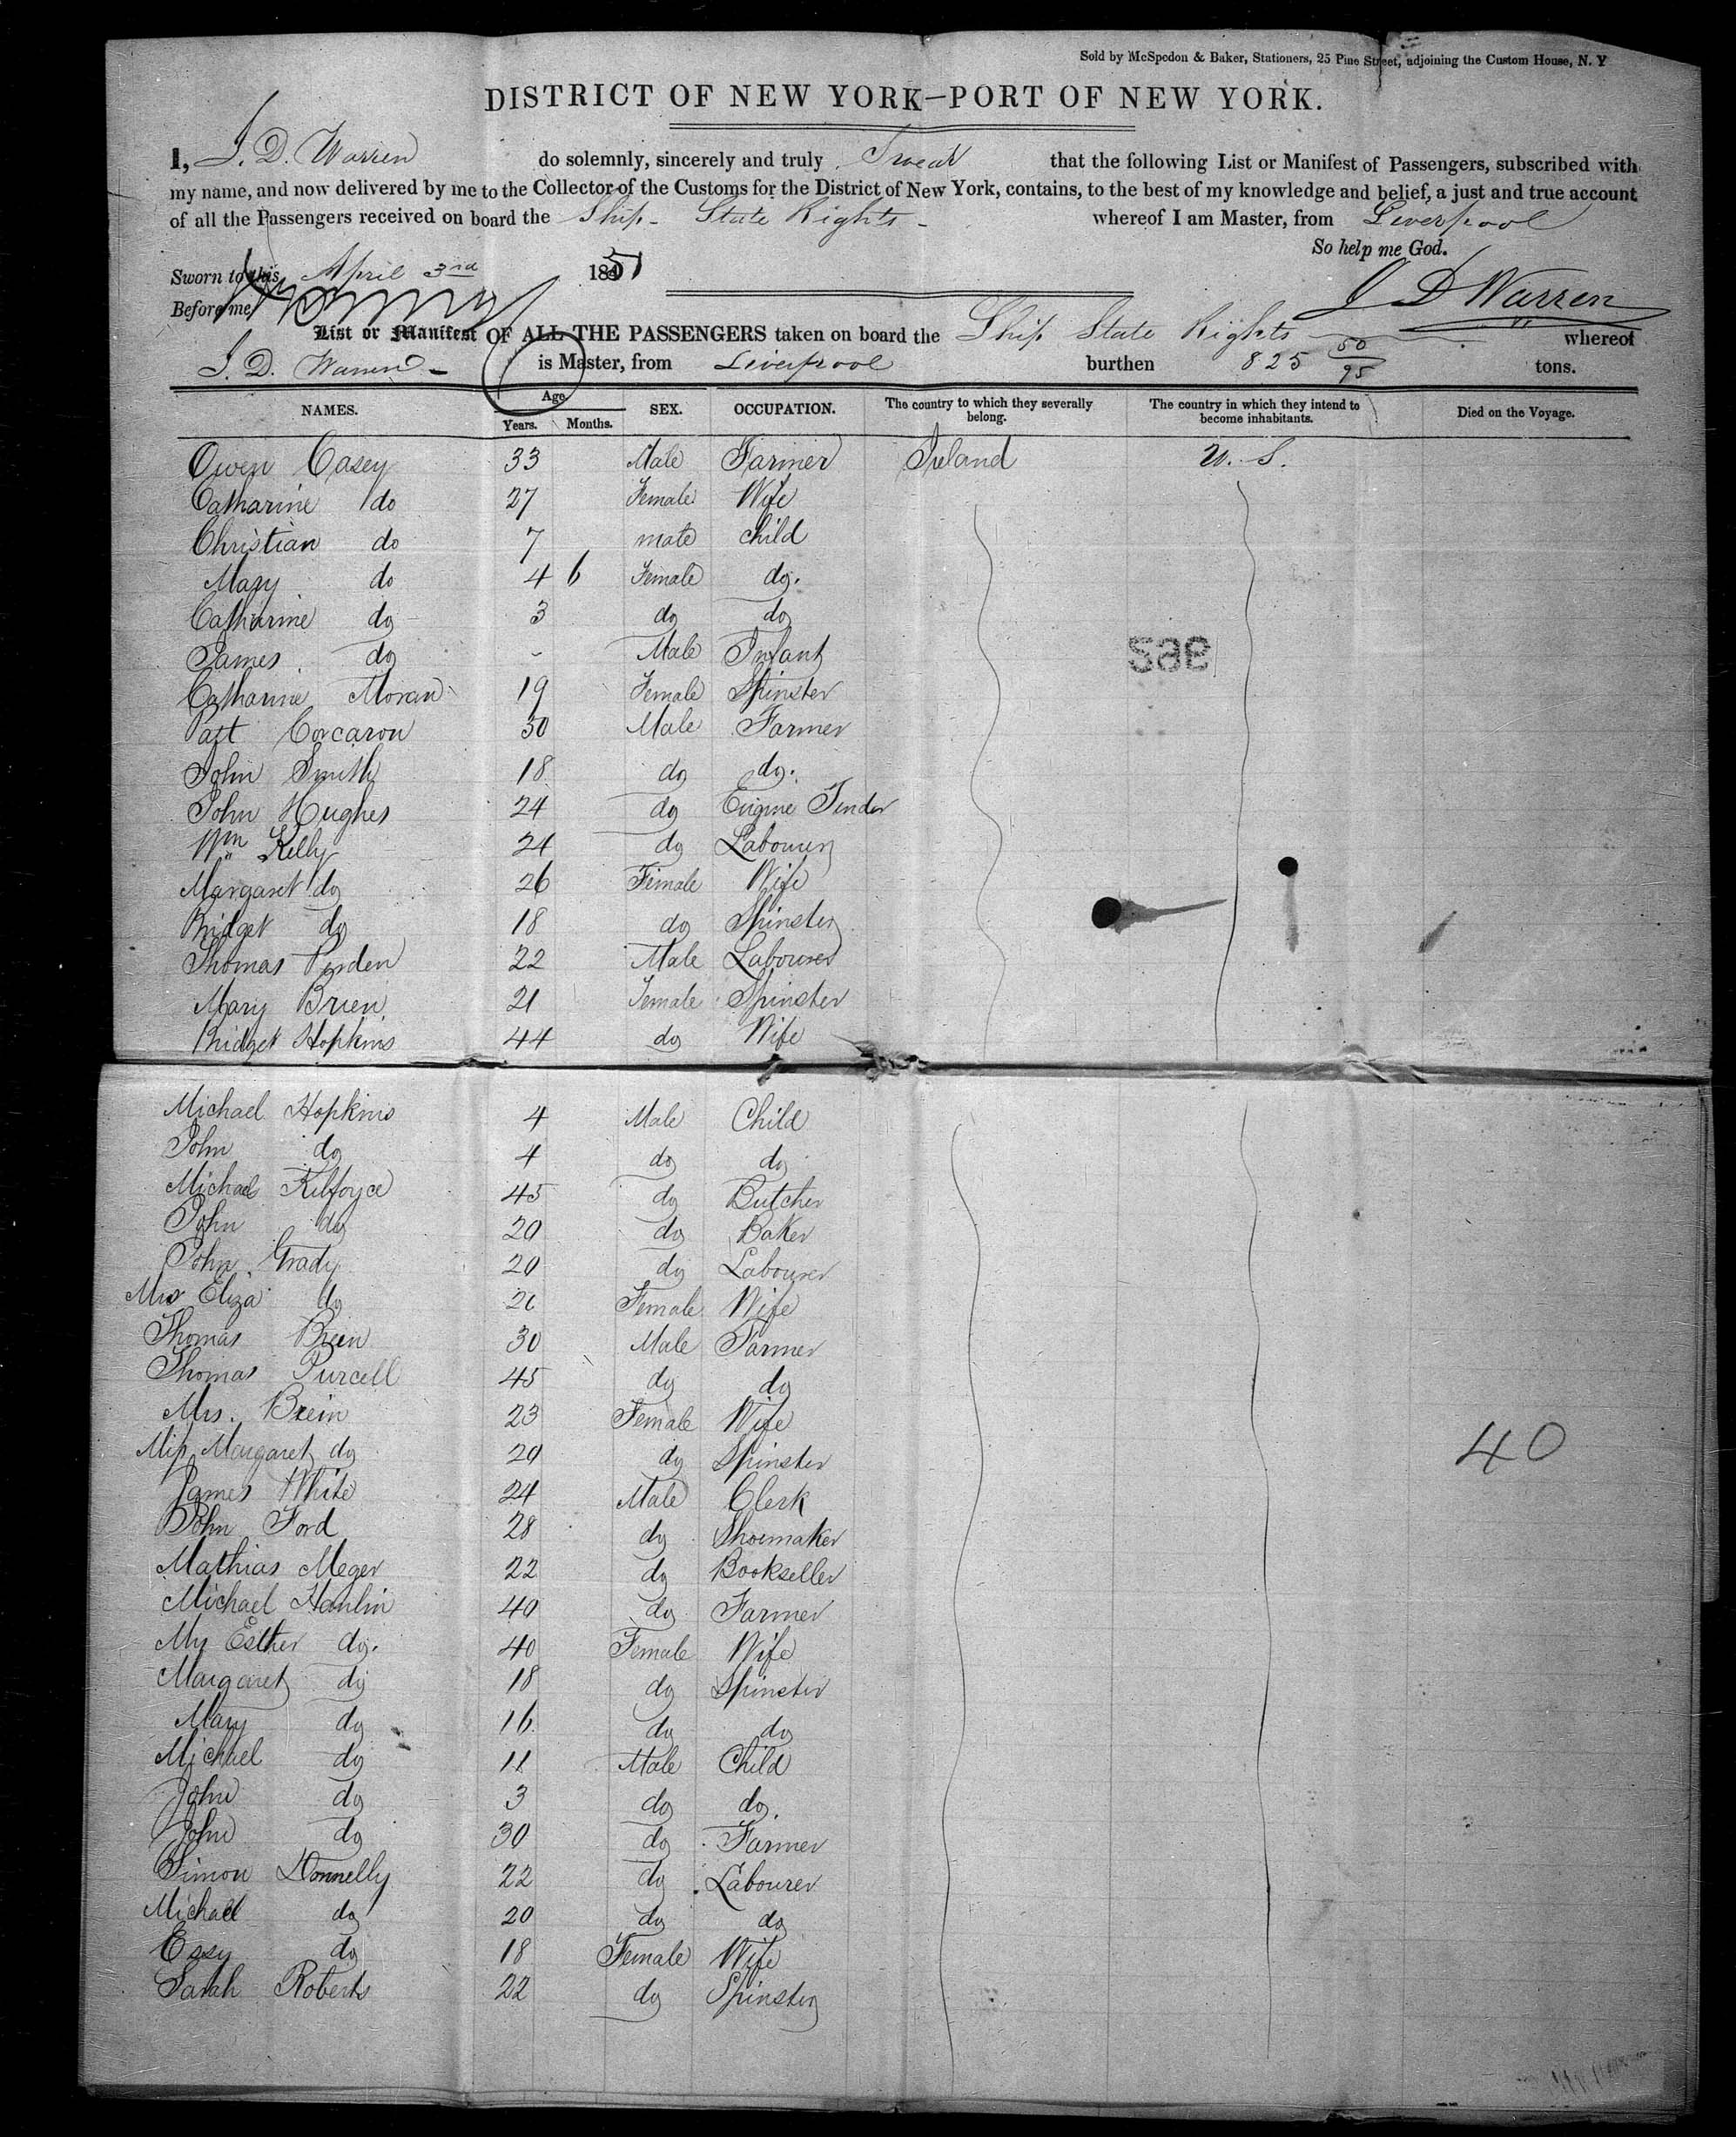 Sold by McSpedon & Baker, Stationers, 25 Pine Street, adjoining the Custom House, N. Y
DISTRICT OF NEW YORK—PORT OF NEW YORK.
I, J. D. Warren do solemnly, sincerely and truly Swear that the following List or Manifest of Passengers, subscribed with
my name, and now delivered by me to the Collector of the Customs for the District of New York, contains, to the best of my knowledge and belief, a just and true account
of all the Passengers received on board the Ship - State Rights - whereof I am Master, from Liverpool
So help me God.
Sworn to this April 3rd 1851
J D Warren
Before me
List or Manifest OF ALL THE PASSENGERS taken on board the Ship State Rights whereof
J. D. Warren - is Master, from Liverpool burthen 825 50/95 tons.
NAMES. Age Years. Months. SEX. OCCUPATION. The country to which they severally belong. The country in which they intend to become inhabitants. Died on the Voyage.
Owen Casey 33 Male Farmer Ireland U. S.
Catharine do 27 Female Wife
Christian do 7 male child
Mary do 4 6 Female do.
Catharine do 3 do do
James do - Male Infant
Catharine Moran 19 Female Spinster
Patt Corcaron 30 Male Farmer
John Smith 18 do do.
John Hughes 24 do Engine Tender
Wm Kelly 24 do Labourer
Margaret do 26 Female Wife
Bridget do 18 do Spinster
Thomas 22 Male Labourer
Mary Brien 21 Female Spinster
Bridget Hopkins 44 do Wife
Michael Hopkins 4 Male Child
John do 4 do do
Michael Kilfoyce 45 do Butcher
John do 20 do Baker
John Grady 20 do Labourer
Mrs Eliza do Female Wife
Thomas Brein 30 Male Farmer
Thomas Purcell 45 do do
Mrs. Brein 23 Female Wife
Miss Margaret do 20 do Spinster
James White 24 Male Clerk
40
John Ford 28 do Shoemaker
Mathias Meger 22 do Bookseller
Michael Hanlin 40 do Farmer
Mrs Esther do. 40 Female Wife
Margaret do 18 do Spinster
Mary do 16 do do
Michael do 11 Male Child
John do 3 do do.
John do 30 do Farmer
Simon Donnelly 22 do Labourer
Michael do 20 do do
Essy do 18 Female Wife
Sarah Roberts 22 do Spinster